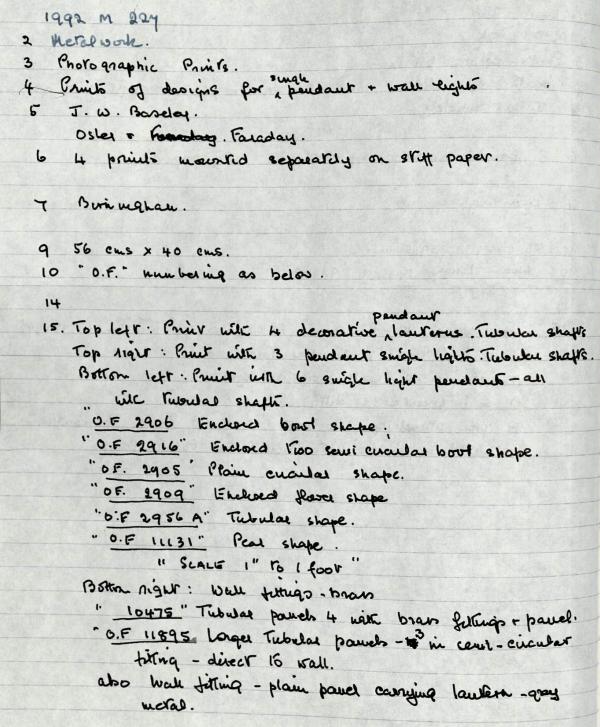 1992 M 224
2 Metalwork.
3 Photographic Prints.
4 Prints of designs for single pendant + wall lights
5 J. W. Baseley.
Osler + Faraday. Faraday.
6 4 prints mounted separately on stiff paper.
7 Birmingham.
9 56 cms x 40 cms.
10 "O.F." numbering as below.
14
15. Top left: Print with 4 decorative pendant lanterns. Tubular shafts
Top right: Print with 3 pendant single lights. Tubular shafts.
Bottom left: Print with 6 single light pendants - all
with tubular shafts.
"O.F 2906 Enclosed bowl shape.
"O.F 2916" Enclosed two semi circular bowl shape.
"O.F. 2905" Plain circular shape.
"O.F. 2909" Enclosed flower shape
"O.F 2956 A" Tubular shape.
"O.F 11131" Pear shape.
"SCALE 1" to 1 foot"
Bottom right: Wall fittings - brass
"10475" Tubular panels 4 with brass fittings + panel.
"O.F 11895 Larger Tubular panels - 3 in semi-circular
fitting - direct to wall.
also Wall fitting - plain panel carrying lantern - gray
metal.